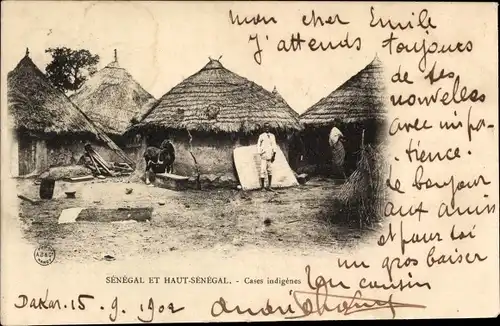 mon cher Emile
J'attends toujours
de tes
nouvelles
avec impa-
tience.
de bonjour
aux amis
et pour toi
un gros baiser
Ton cousin
SÉNÉGAL ET HAUT-SÉNÉGAL. - Cases indigènes
Dakar 15. 9. 1902 André